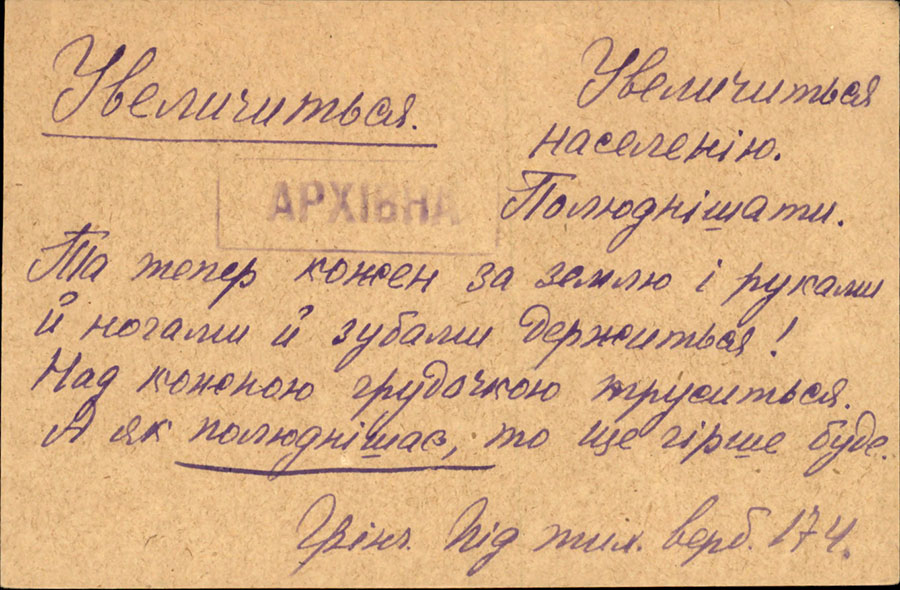 Увеличиться.
Увеличиться
населенію.
Полюднішати.
АРХІВНА
Та тепер кожен за землю і руками
й ногами й зубами держиться!
Над кожною грудочкою труситься.
А як полюднішає, то ще гірше буде.
Грінч. Під тих. верб. 174.